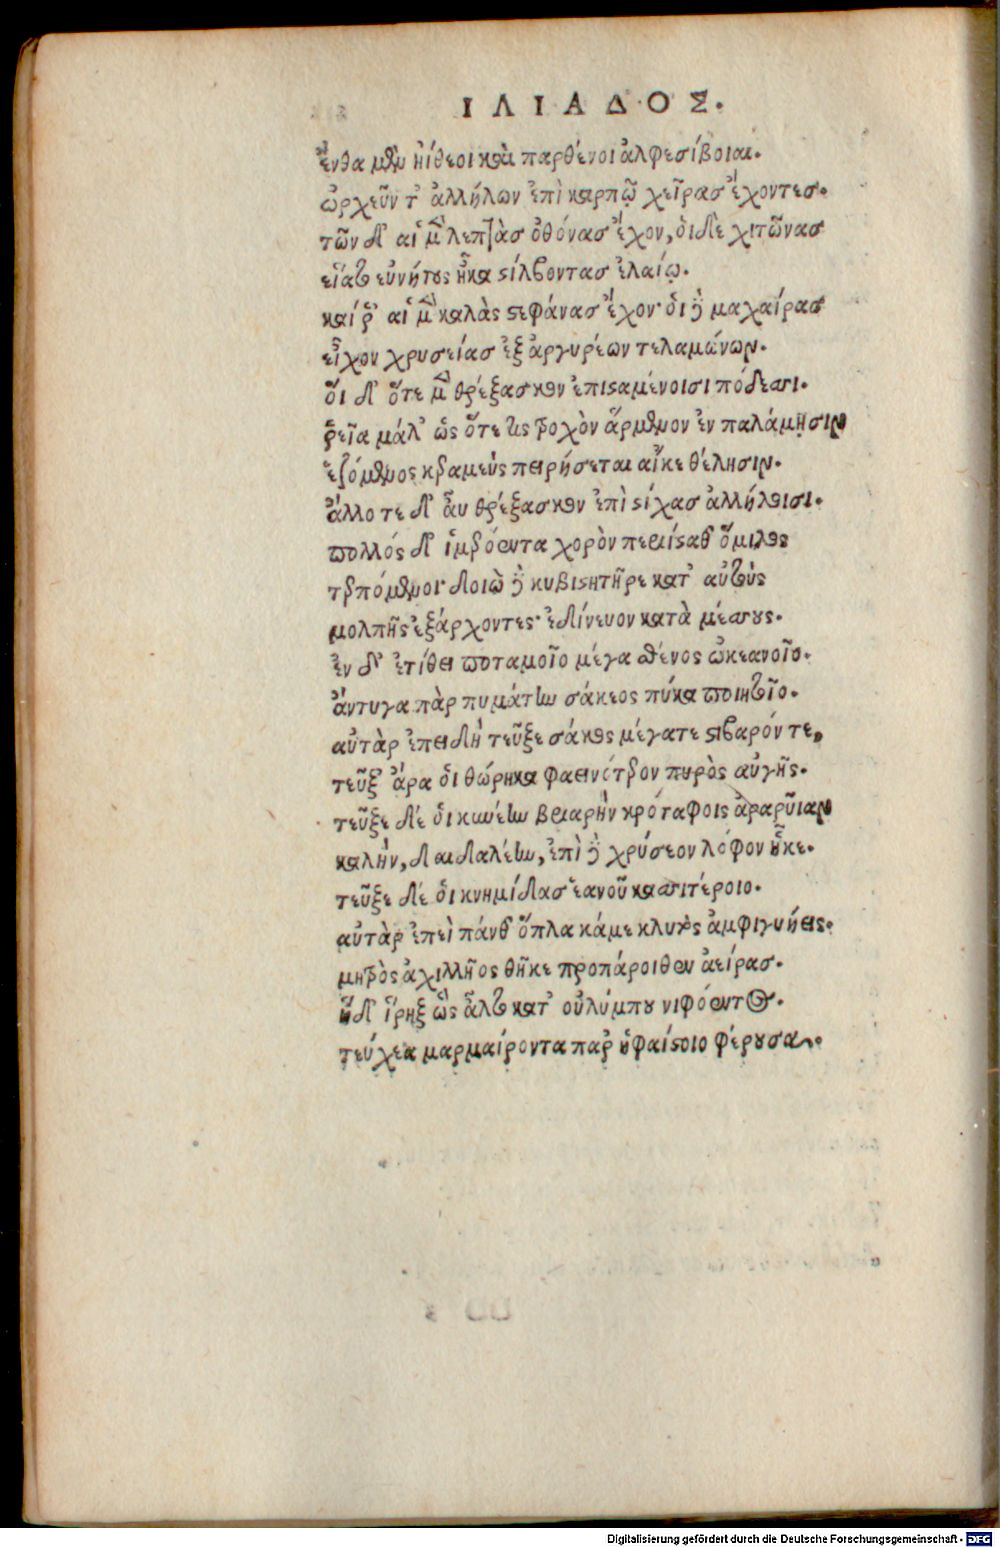 ΙΛΙΑΔΟΣ.
ἔνθα μὲν ἠίθεοι καὶ παρθένοι ἀλφεσίβοιαι.
ὠρχεῦντ' ἀλλήλων ἐπὶ καρπῷ χεῖρας ἔχοντες.
τῶν δ' αἱ μὲν λεπτὰς ὀθόνας ἔχον, οἱ δὲ χιτῶνας
εἵατ' εὐνήτους ἦκα στίλβοντας ἐλαίῳ.
καί ῥ' αἱ μὲν καλὰς στεφάνας ἔχον· οἱ δὲ μαχαίρας
εἶχον χρυσείας ἐξ ἀργυρέων τελαμώνων.
οἵ δ' ὅτε μὲν θρέξασκον ἐπισταμένοισι πόδεσσι.
ῥεῖα μάλ' ὡς ὅτε τις τροχὸν ἄρμενον ἐν παλάμῃσιν
ἑζόμενος κεραμεὺς πειρήσεται αἴκε θέλησιν.
ἄλλοτε δ' αὖ θρέξασκον ἐπὶ στίχας ἀλλήλοισι.
πολλός δ' ἱμερόεντα χορὸν περιίσταθ' ὅμιλος
τερπόμενοι· δοιὼ δὲ κυβιστητῆρε κατ' αὐτοὺς
μολπῆς ἐξάρχοντες· ἐδίνευον κατὰ μέσσους.
ἐν δ' ἐτίθει ποταμοῖο μέγα σθένος ὠκεανοῖο.
ἄντυγα πὰρ πυμάτην σάκεος πύκα ποιητοῖο.
αὐτὰρ ἐπειδὴ τεῦξε σάκος μέγα τε στιβαρόν τε,
τεῦξ' ἄρα οἱ θώρηκα φαεινότερον πυρὸς αὐγῆς.
τεῦξε δέ οἱ κυνέην βριαρὴν κροτάφοις ἀραρῦιαν
καλὴν, δαιδαλέην, ἐπὶ δὲ χρύσεον λόφον ἧκε.
τεῦξε δέ οἱ κνημίδας ἑανοῦ κασσιτέροιο.
αὐτὰρ ἐπεὶ πάνθ' ὅπλα κάμε κλυτὸς ἀμφιγυήεις.
μητρὸς ἀχιλλῆος θῆκε προπάροιθεν ἀείρας.
ἣ δ' ἵρηξ ὣς ἆλτο κατ' οὐλύμπου νιφόεντος.
τεύχεα μαρμαίροντα παρ' ἡφαίστοιο φέρουσα.
Digitalisierung gefördert durch die Deutsche Forschungsgemeinschaft - DFG